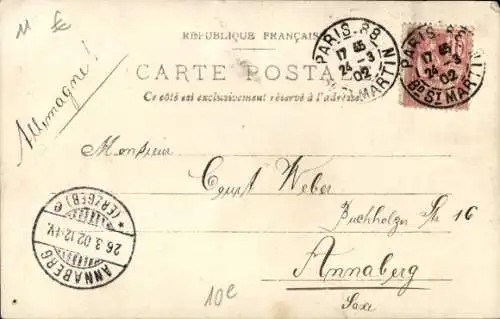 11 £
RÉPUBLIQUE FRANÇAISE
CARTE POSTA
Ce côté est exclusivement réservé à l'adresse
PARIS - 88
17 45
24 -3
02
Bd ST MARTIN
PARIS - 88
17 45
24 -3
02
Bd ST MARTIN
Allemagne!
Monsieur
Curt Weber
Buchholzer Str 16
Annaberg
Saxe
ANNABERG
26.3.02.12-1V.
* (ERZGEB) e
10e